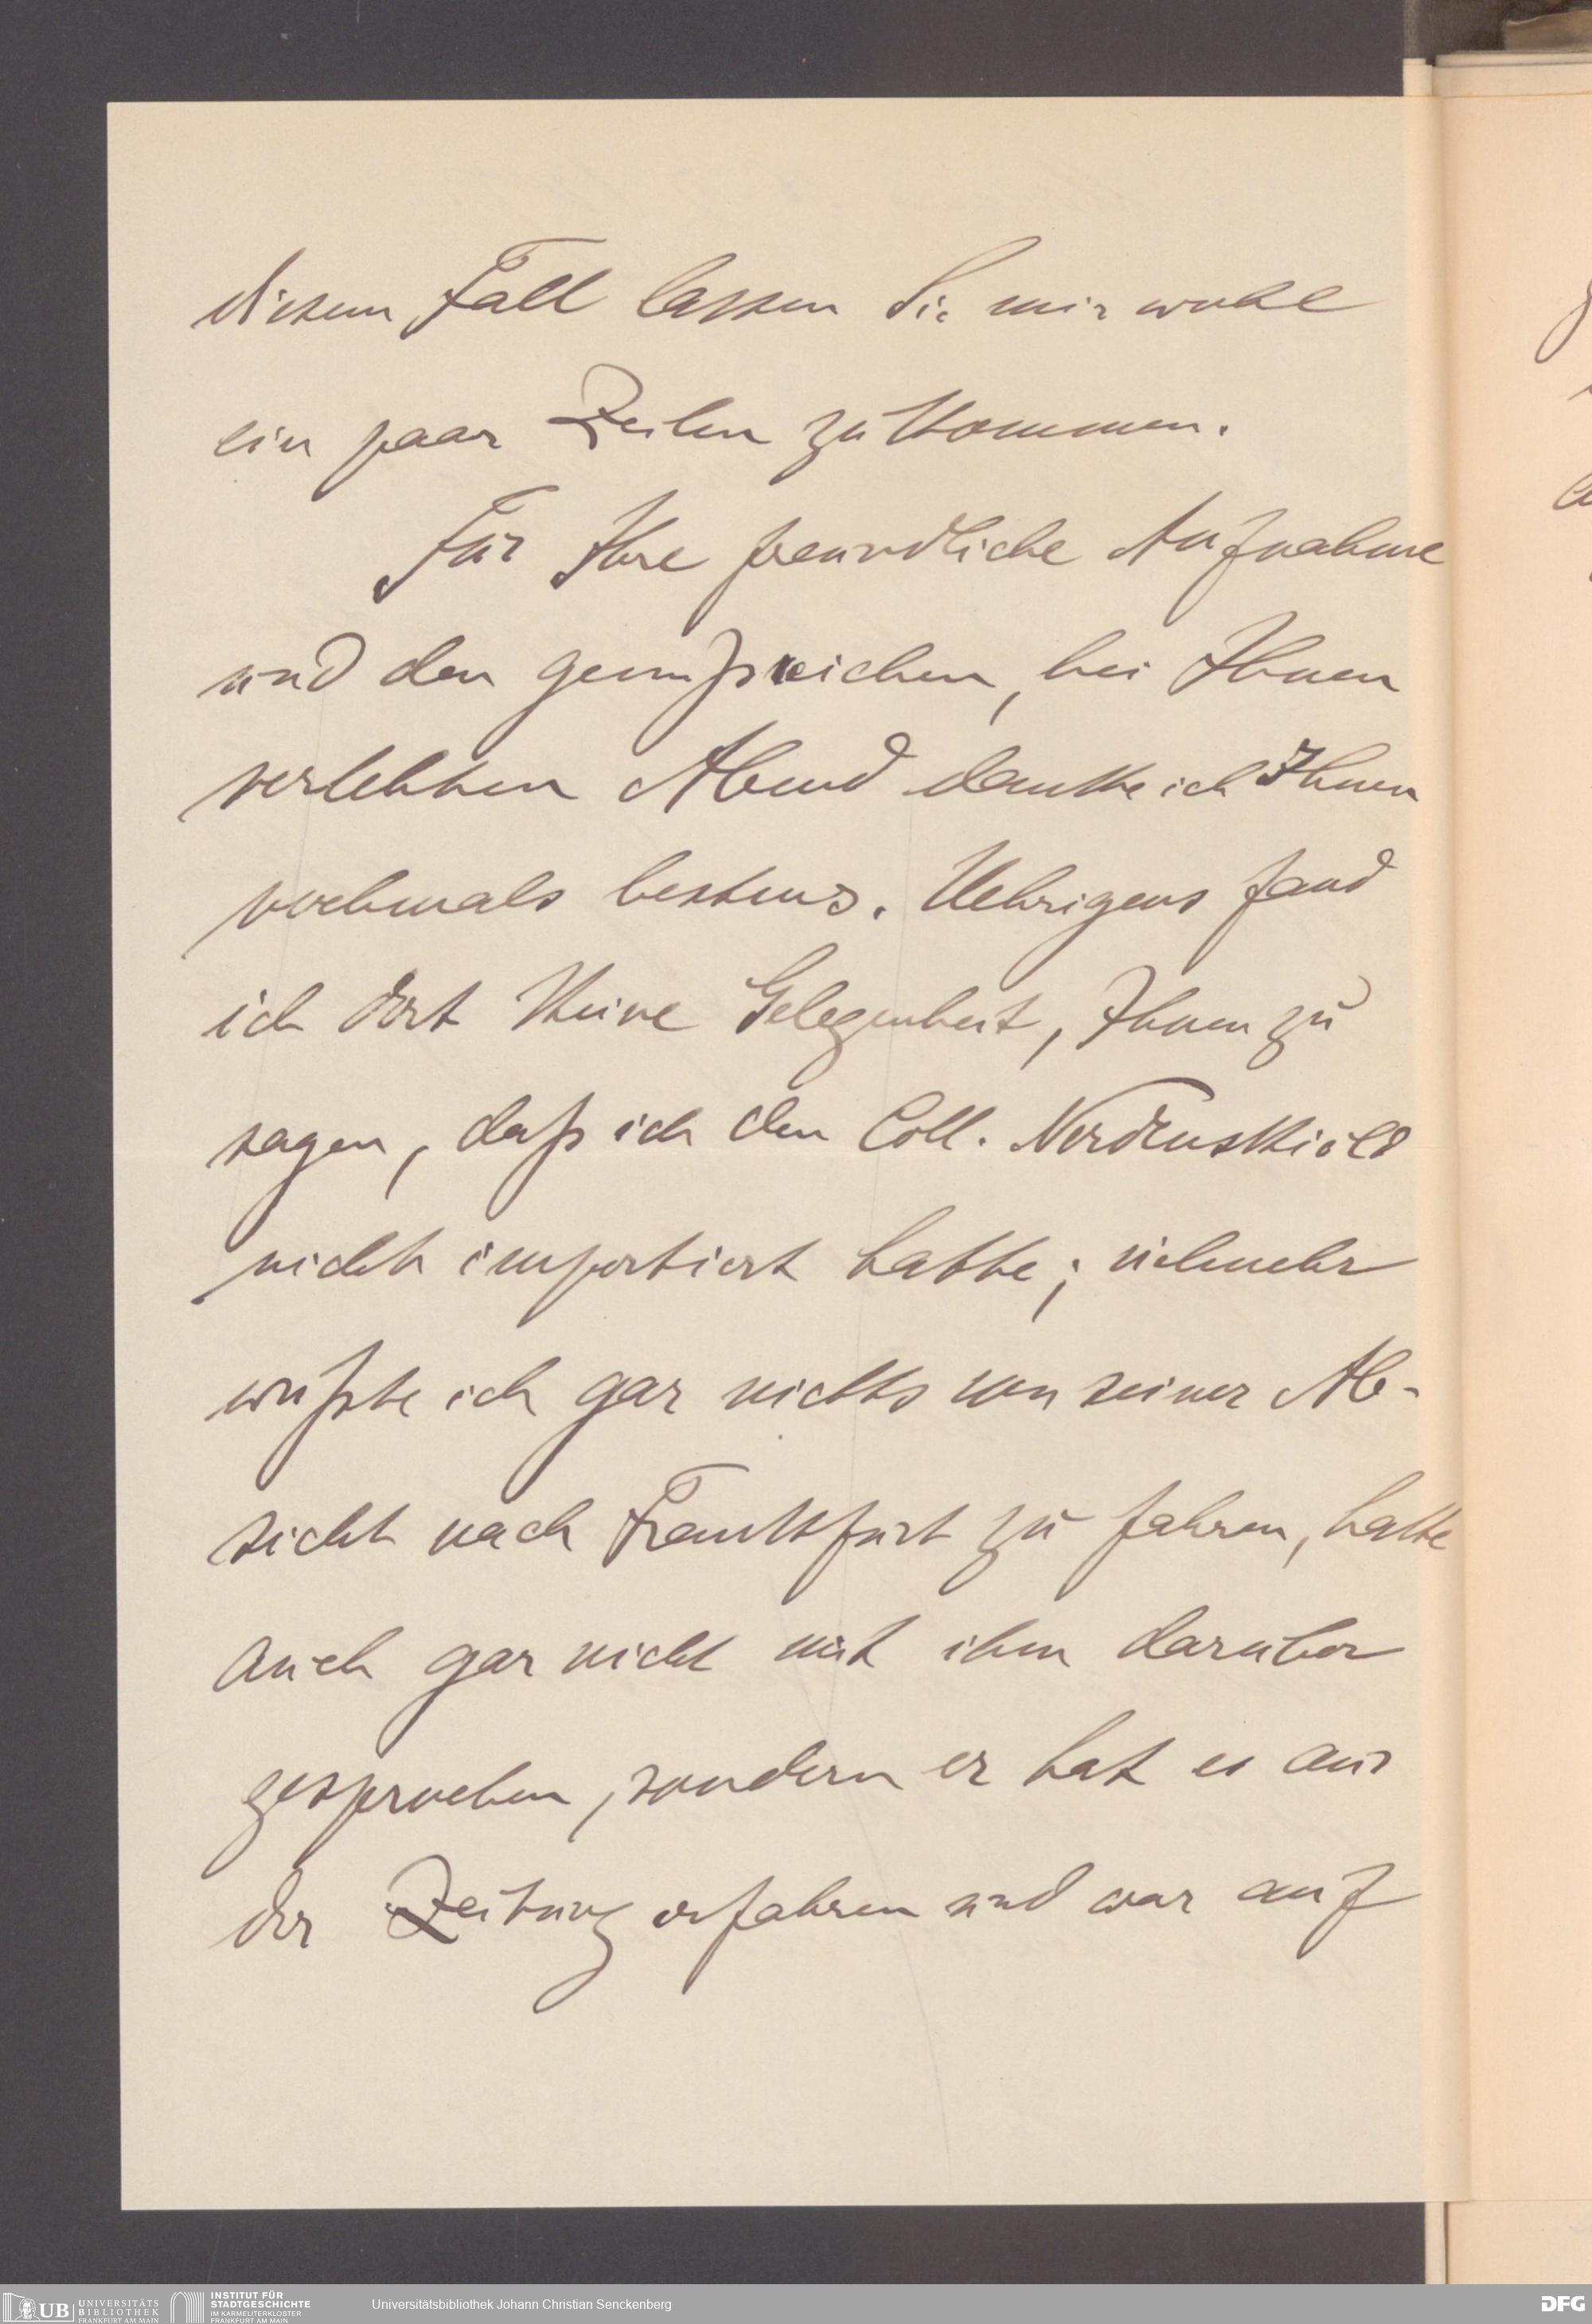 diesem Fall lassen Sie mir wohl
ein paar Zeilen zukommen.
Für Ihre freundliche Aufnahme
und den genußreichen, bei Ihnen
verlebten Abend danke ich Ihnen
nochmals bestens. Uebrigens fand
ich dort keine Gelegenheit, Ihnen zu
sagen, daß ich den Coll. Nordenskiöld
nicht importiert hatte; vielmehr
wußte ich gar nichts von seiner Ab-
sicht nach Frankfurt zu fahren, hatte
auch gar nicht mit ihm darüber
gesprochen, sondern er hat es aus
der Zeitung erfahren und war auf
UB UNIVERSITÄTS BIBLIOTHEK FRANKFURT AM MAIN
INSTITUT FÜR STADTGESCHICHTE IM KARMELITERKLOSTER FRANKFURT AM MAIN
Universitätsbibliothek Johann Christian Senckenberg
DFG